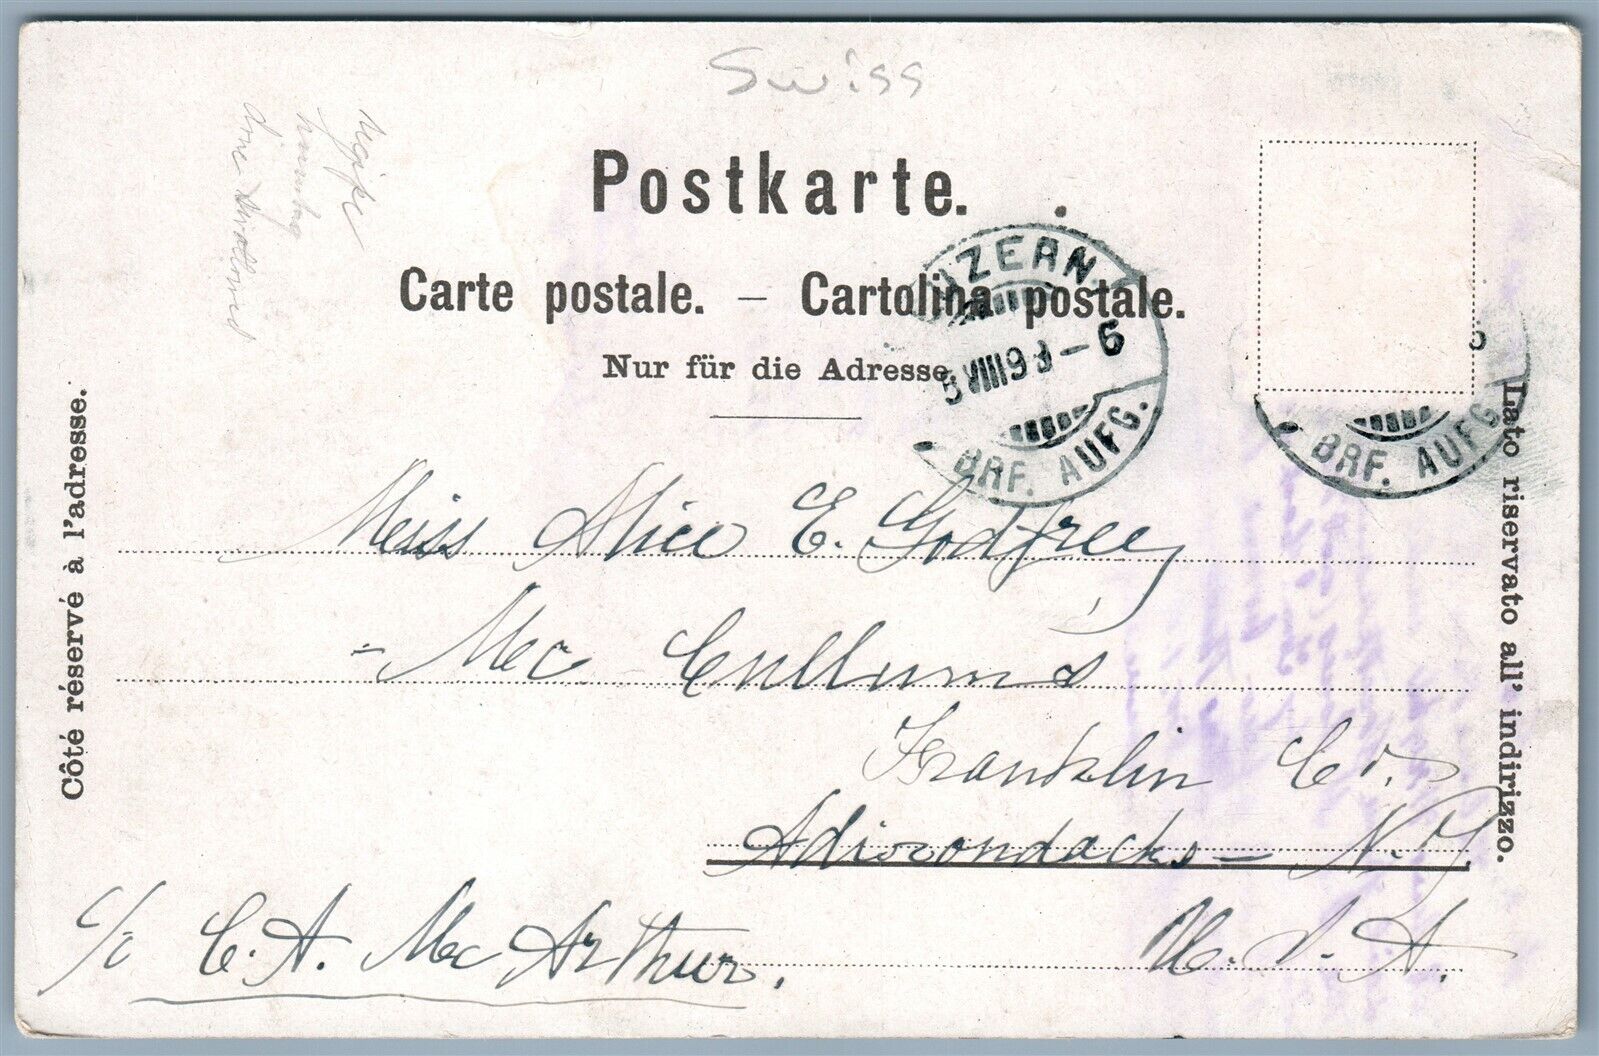 Swiss
Postkarte.
Carte postale. – Cartolina postale.
Nur für die Adresse.
LUZERN
VIII
– 6
BRF. AUFG.
BRF. AUFG.
Côté réservé à l'adresse.
Lato riservato all' indirizzo.
Miss Alice E. Godfrey,
- Mc Cullums
Franklin Co.
Adirondacks – N.Y.
c/o C. A. Mc Arthur.
U. S. A.